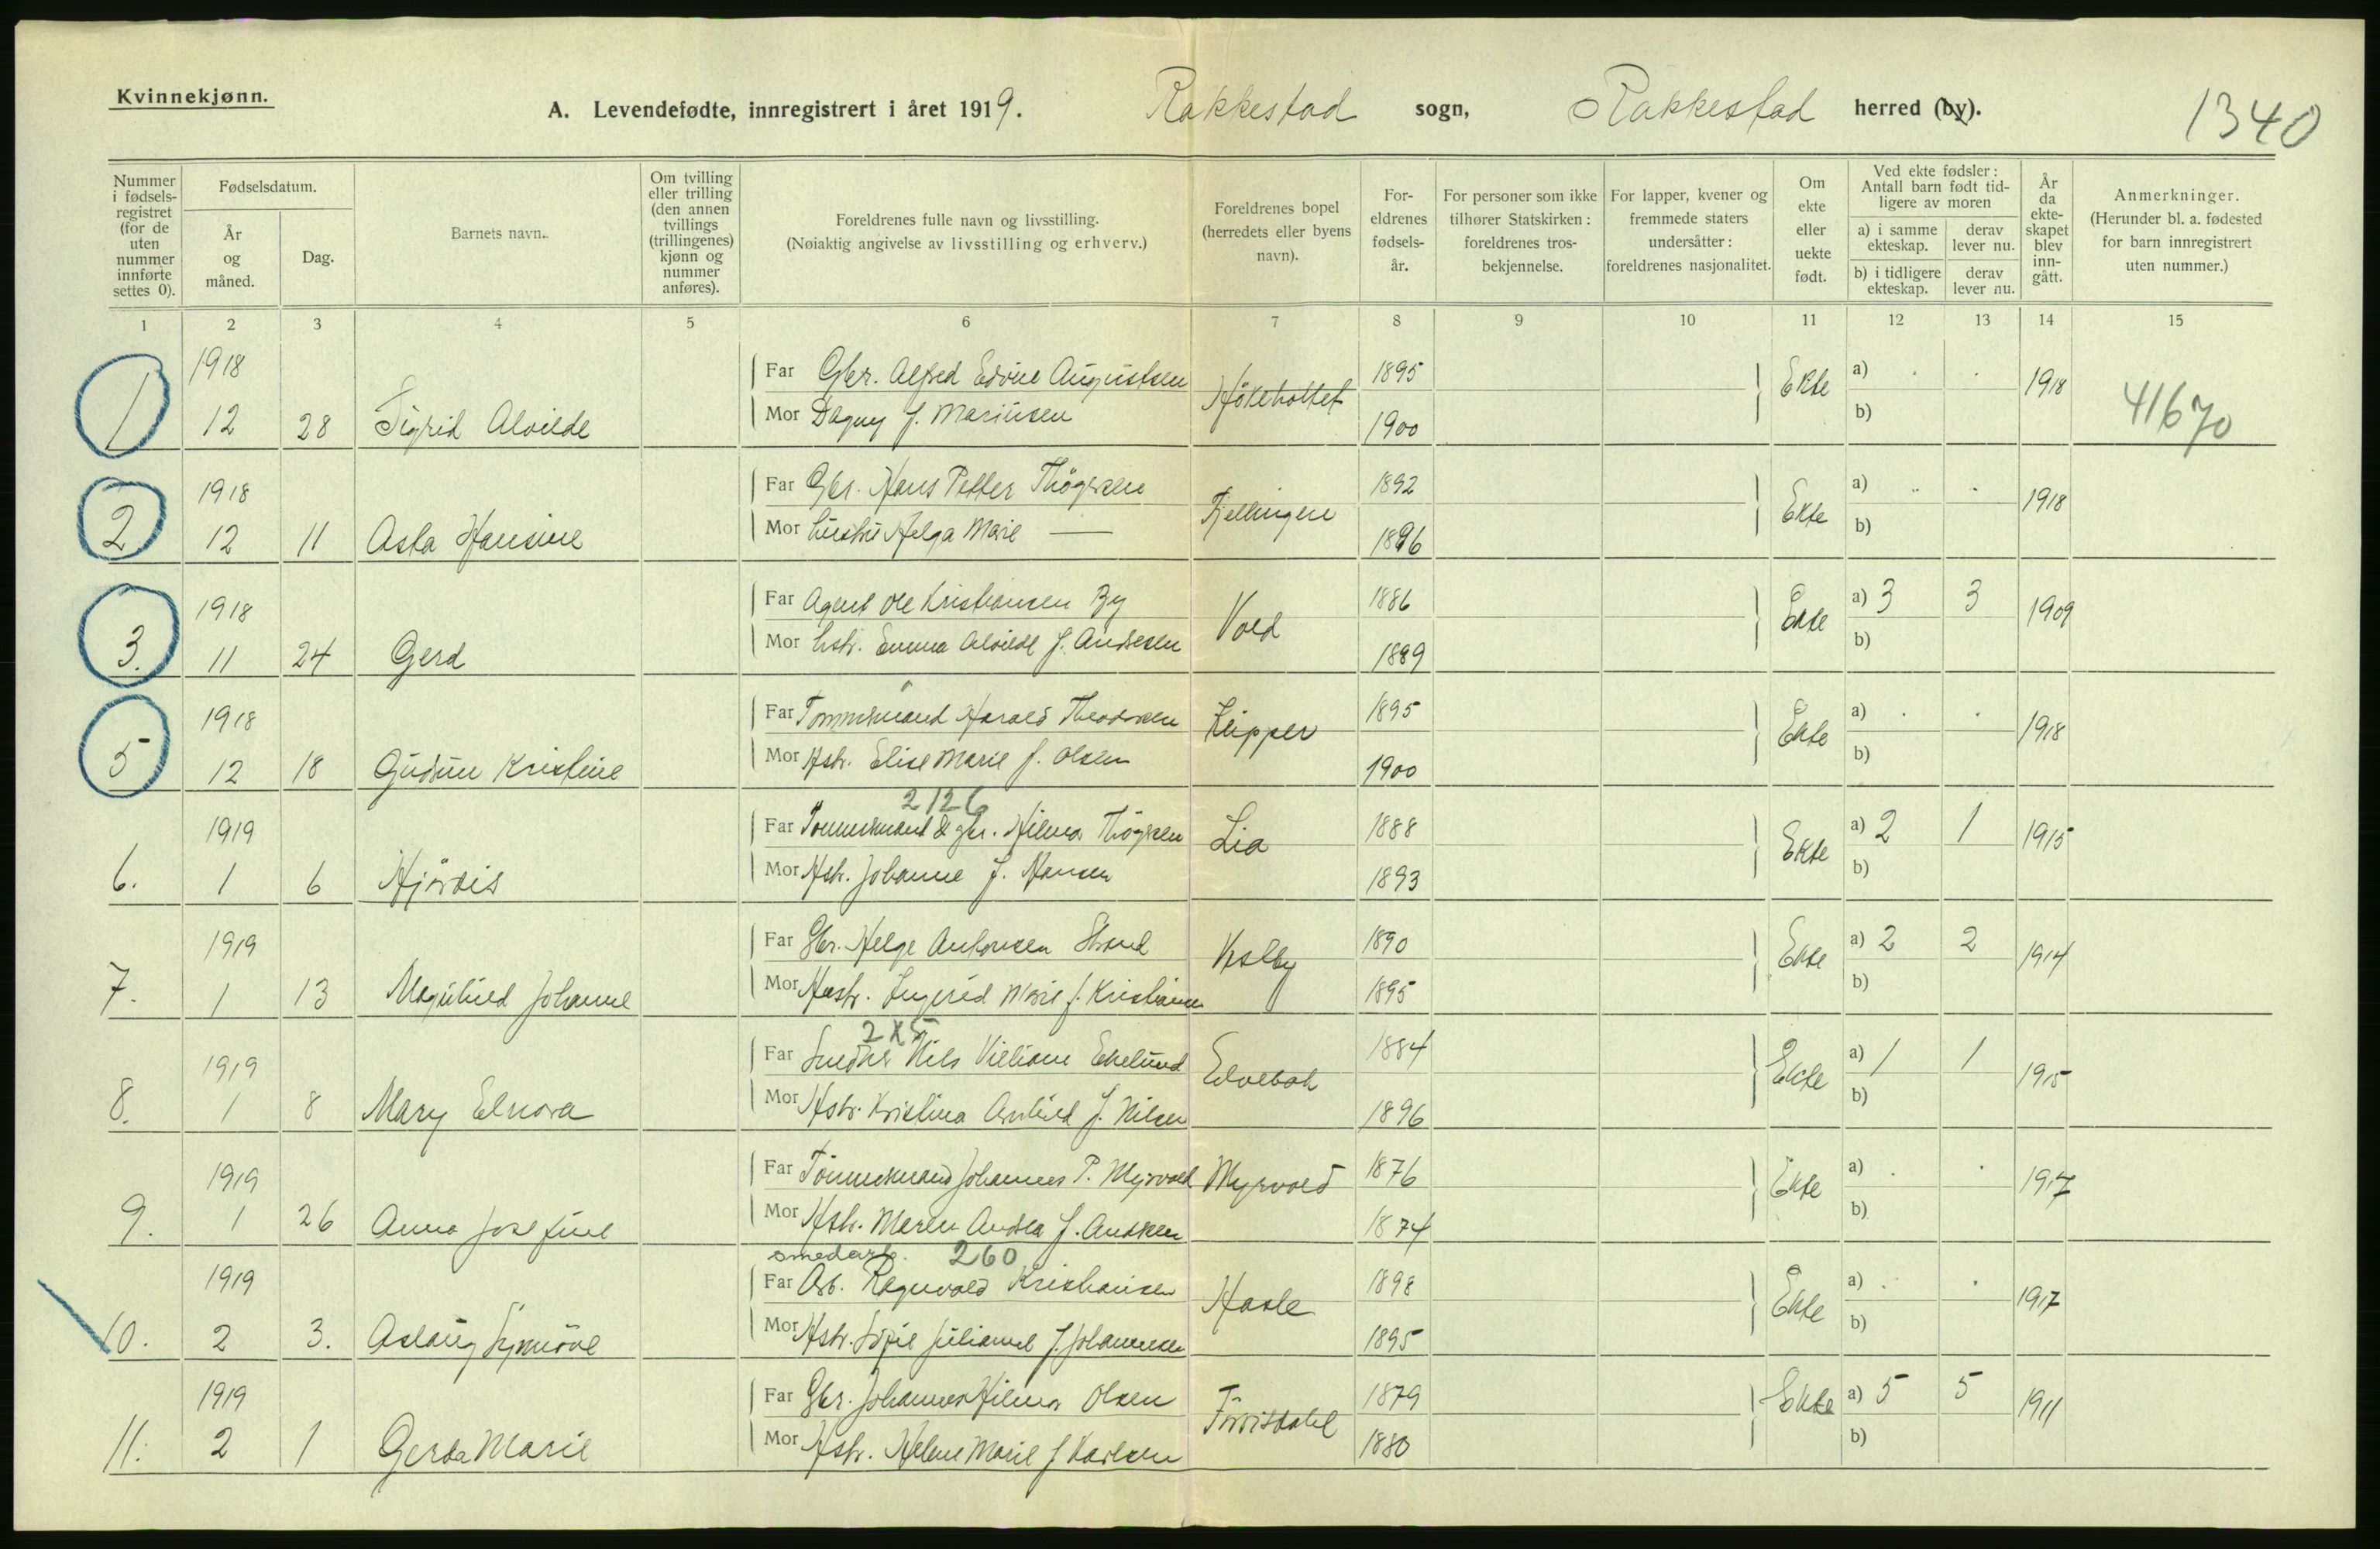 Kvinnekjønn.
A. Levendefødte, innregistrert i året 1919. Rakkestad sogn, Rakkestad herred (by).
1340
Nummer i fødsels-registret (for de uten nummer innførte settes 0).
Fødselsdatum.
År og måned.
Dag.
Barnets navn.
Om tvilling eller trilling (den annen tvillings (trillingenes) kjønn og nummer anføres).
Foreldrenes fulle navn og livsstilling.
(Nøiaktig angivelse av livsstilling og erhverv.)
Foreldrenes bopel (herredets eller byens navn).
For-eldrenes fødsels-år.
For personer som ikke tilhører Statskirken: foreldrenes tros-bekjennelse.
For lapper, kvener og fremmede staters undersåtter: foreldrenes nasjonalitet.
Om ekte eller uekte født.
Ved ekte fødsler: Antall barn født tid-ligere av moren
a) i samme ekteskap. derav lever nu.
b) i tidligere ekteskap. derav lever nu.
År da ekte-skapet blev inn-gått.
Anmerkninger.
(Herunder bl. a. fødested for barn innregistrert uten nummer.)
1 2 3 4 5 6 7 8 9 10 11 12 13 14 15
1918 Far Gbr. Alfred Edvin Augustsen 1895 a) . .
1 12 28 Sigrid Alvilde Mor Dagny f. Mariusen Høkeholtet 1900 Ekte b) 1918 41670
1918 Far Gbr. Hans Petter Thøgersen 1892 a) . .
2 12 11 Asta Hansine Mor hustru Helga Marie — Fjellingen 1896 Ekte b) 1918
1918 Far Agent Ole Kristiansen By 1886 a) 3 3
3. 11 24 Gerd Mor hstr. Emma Alvilde f. Andresen Vold 1889 Ekte b) 1909
1918 Far Tømmermand Harald Theodorsen 1895 a) . .
5 12 18 Gudrun Kristine Mor Hstr. Elise Marie f. Olsen Klipper 1900 Ekte b) 1918
2126
1919 Far Tømmermand & gbr. Hilmar Thøgersen Lia 1888 a) 2 1
6. 1 6 Hjørdis Mor Hstr. Johanne f. Hansen 1893 Ekte b) 1915
1919 Far Gbr. Helge Antonsen Strand 1890 a) 2 2
7. 1 13 Magnhild Johanne Mor Hustr. Ingerid Marie f. Kristiansen Keslby 1895 Ekte b) 1914
1919 Far Smed Nils Villiam Ekelund 1884 a) 1 1
8. 1 8 Mary Elnora Mor Hstr. Kristina Arnhild f. Nilsen Edvebak 1896 Ekte b) 1915
1919 Far Tømmermand Johannes P. Myrvold Myrvold 1876 a) . .
9. 1 26 Anna Josefine Mor Hstr. Maren Andrea f. Andersen 1874 Ekte b) 1917
smedarb. 260
1919 Far Arb. Ragnvald Kristiansen 1898 a) . .
10. 2 3. Aslaug Synnøve Mor Hstr. Sofie Juliane f. Johannesen Hasle 1895 Ekte b) 1917
1919 Far Gbr. Johannes Hilmar Olsen 1879 a) 5 5
11. 2 1 Gerda Marie Mor Hstr. Helene Marie f Karlsen 1880 Ekte b) 1911